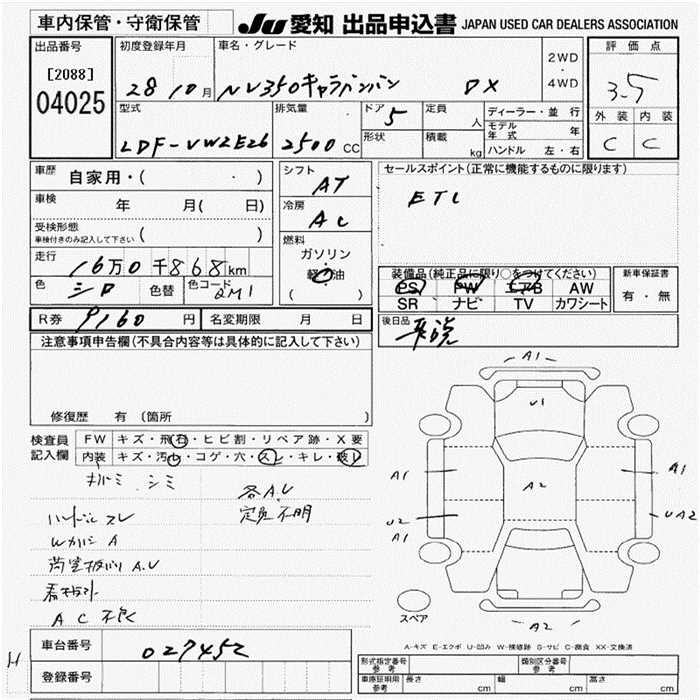 車内保管・守衛保管 JU 愛知 出品申込書 JAPAN USED CAR DEALERS ASSOCIATION
出品番号 [2088] 04025
初度登録年月 28 10月
車名・グレード NV350キャラバンバン DX
2WD・4WD
評価点 3.5
外装 内装
C C
型式 LDF-VW2E26
排気量 2500 CC
ドア 5 形状
定員 人 積載 kg
ディーラー・並行
モデル年式 年
ハンドル 左・右
車歴 自家用・( ・ )
車検 年 月( 日)
受検形態 車検付きのみ記入して下さい ( )
走行 16万0千868km
色 シロ 色替 色コード QM1
シフト AT
冷房 AC
燃料 ガソリン 軽油 ( )
セールスポイント(正常に機能するものに限ります)
ETC
装備品(純正品に限り○をつけてください)
PS PW エアB AW
SR ナビ TV カワシート
新車保証書 有・無
R券 9160円 名変期限 月 日
後日品
注意事項申告欄(不具合内容等は具体的に記入して下さい)
修復歴 有 (箇所 )
検査員記入欄
FW キズ・飛石・ヒビ割・リペア跡・X要
内装 キズ・汚れ・コゲ・穴・スレ・キレ・破れ
シミ
各A.U
定員不明
ハンドルスレ
Wカバー A
A.U
AC 不良
A1
U1
A1 A2 A1
U2 A1 UA2
A2
スペア
A-キズ E-エクボ U-凹み W-補修跡 S-サビ C-腐食 XX-交換済
車台番号 027452
登録番号
型式指定番号 参考 類別区分番号 参考
車庫証明用 参考 長さ cm 幅 cm 高さ cm
H